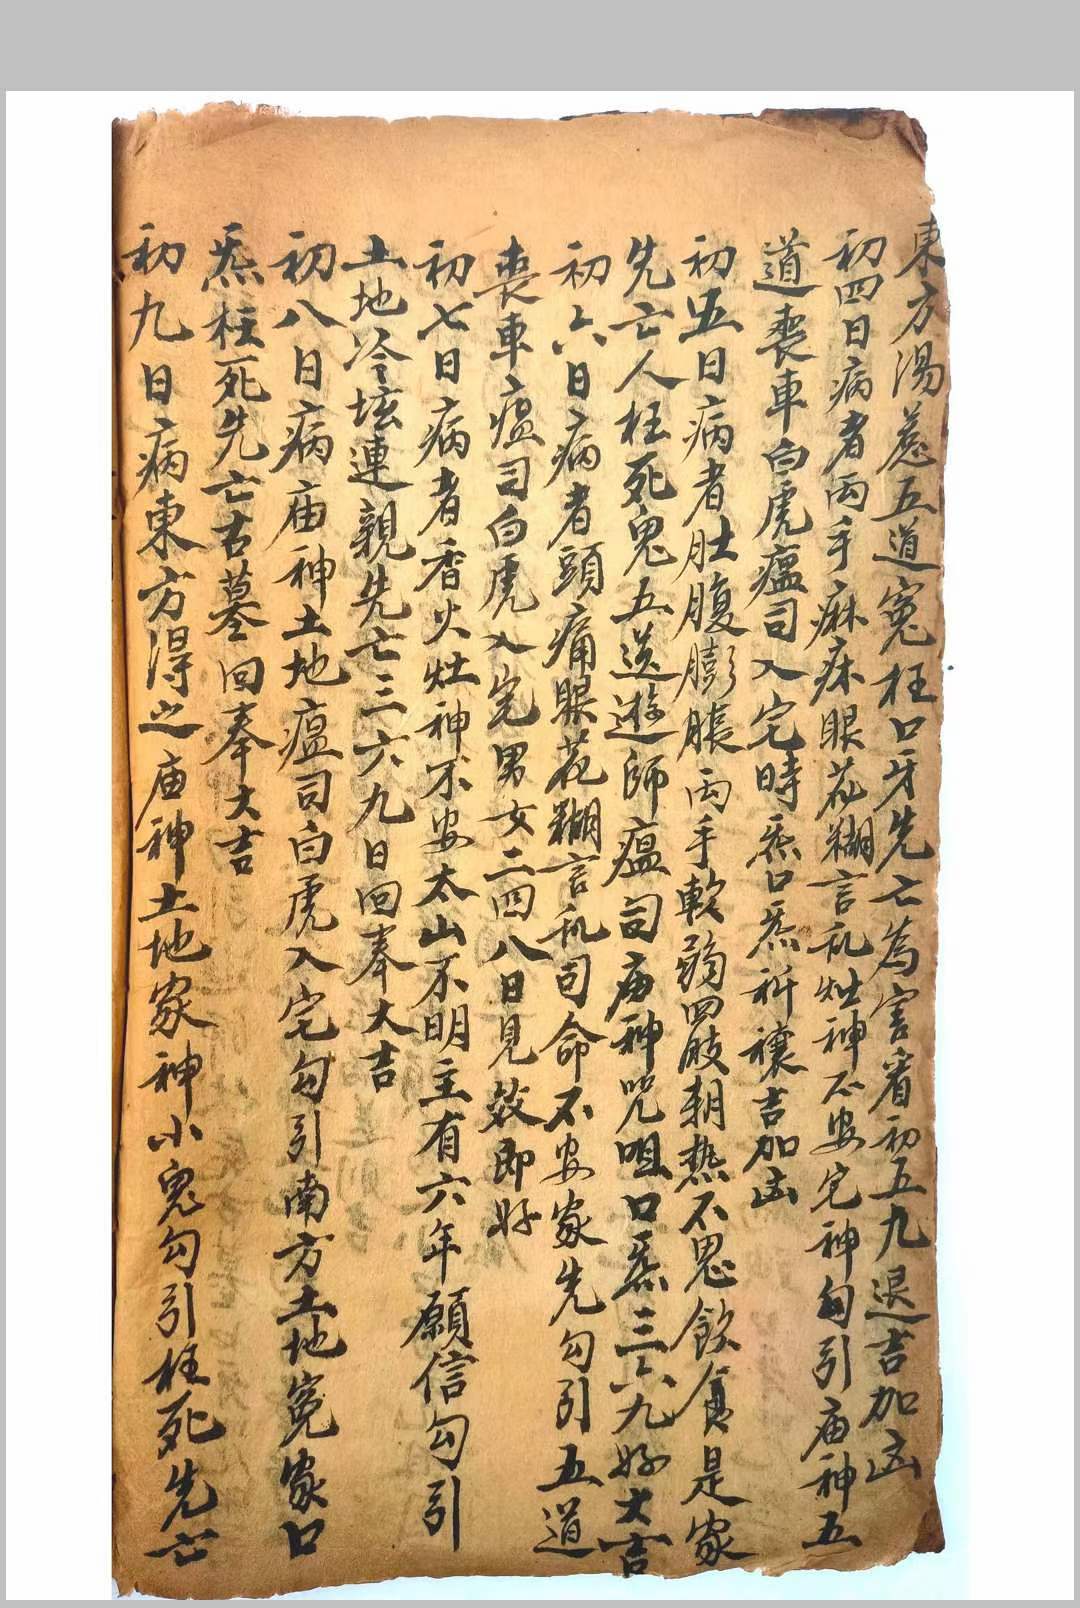 東方湯惹五道冤枉口牙先亡為害看初五九退吉加凶
初四日病者両手麻床眼花糊言乱灶神不安宅神勾引庙神五
道喪車白虎瘟司入宅時炁口炁祈禳吉加凶
初五日病者肚腹膨脹両手軟弱四肢朝热不思飲食是家
先亡人枉死鬼五送遊師瘟司庙神咒咀口炁三六九好大吉
初六日病者頭痛眼花糊言乱司命不安家先勾引五道
喪車瘟司白虎入宅男女二四八日見效即好
初七日病者香火灶神不安太山不明主有六年願信勾引
土地冷坛連親先亡三六九日回奉大吉
初八日病庙神土地瘟司白虎入宅勾引南方土地冤家口
炁枉死先亡古墓回奉大吉
初九日病東方得之庙神土地家神小鬼勾引枉死先亡